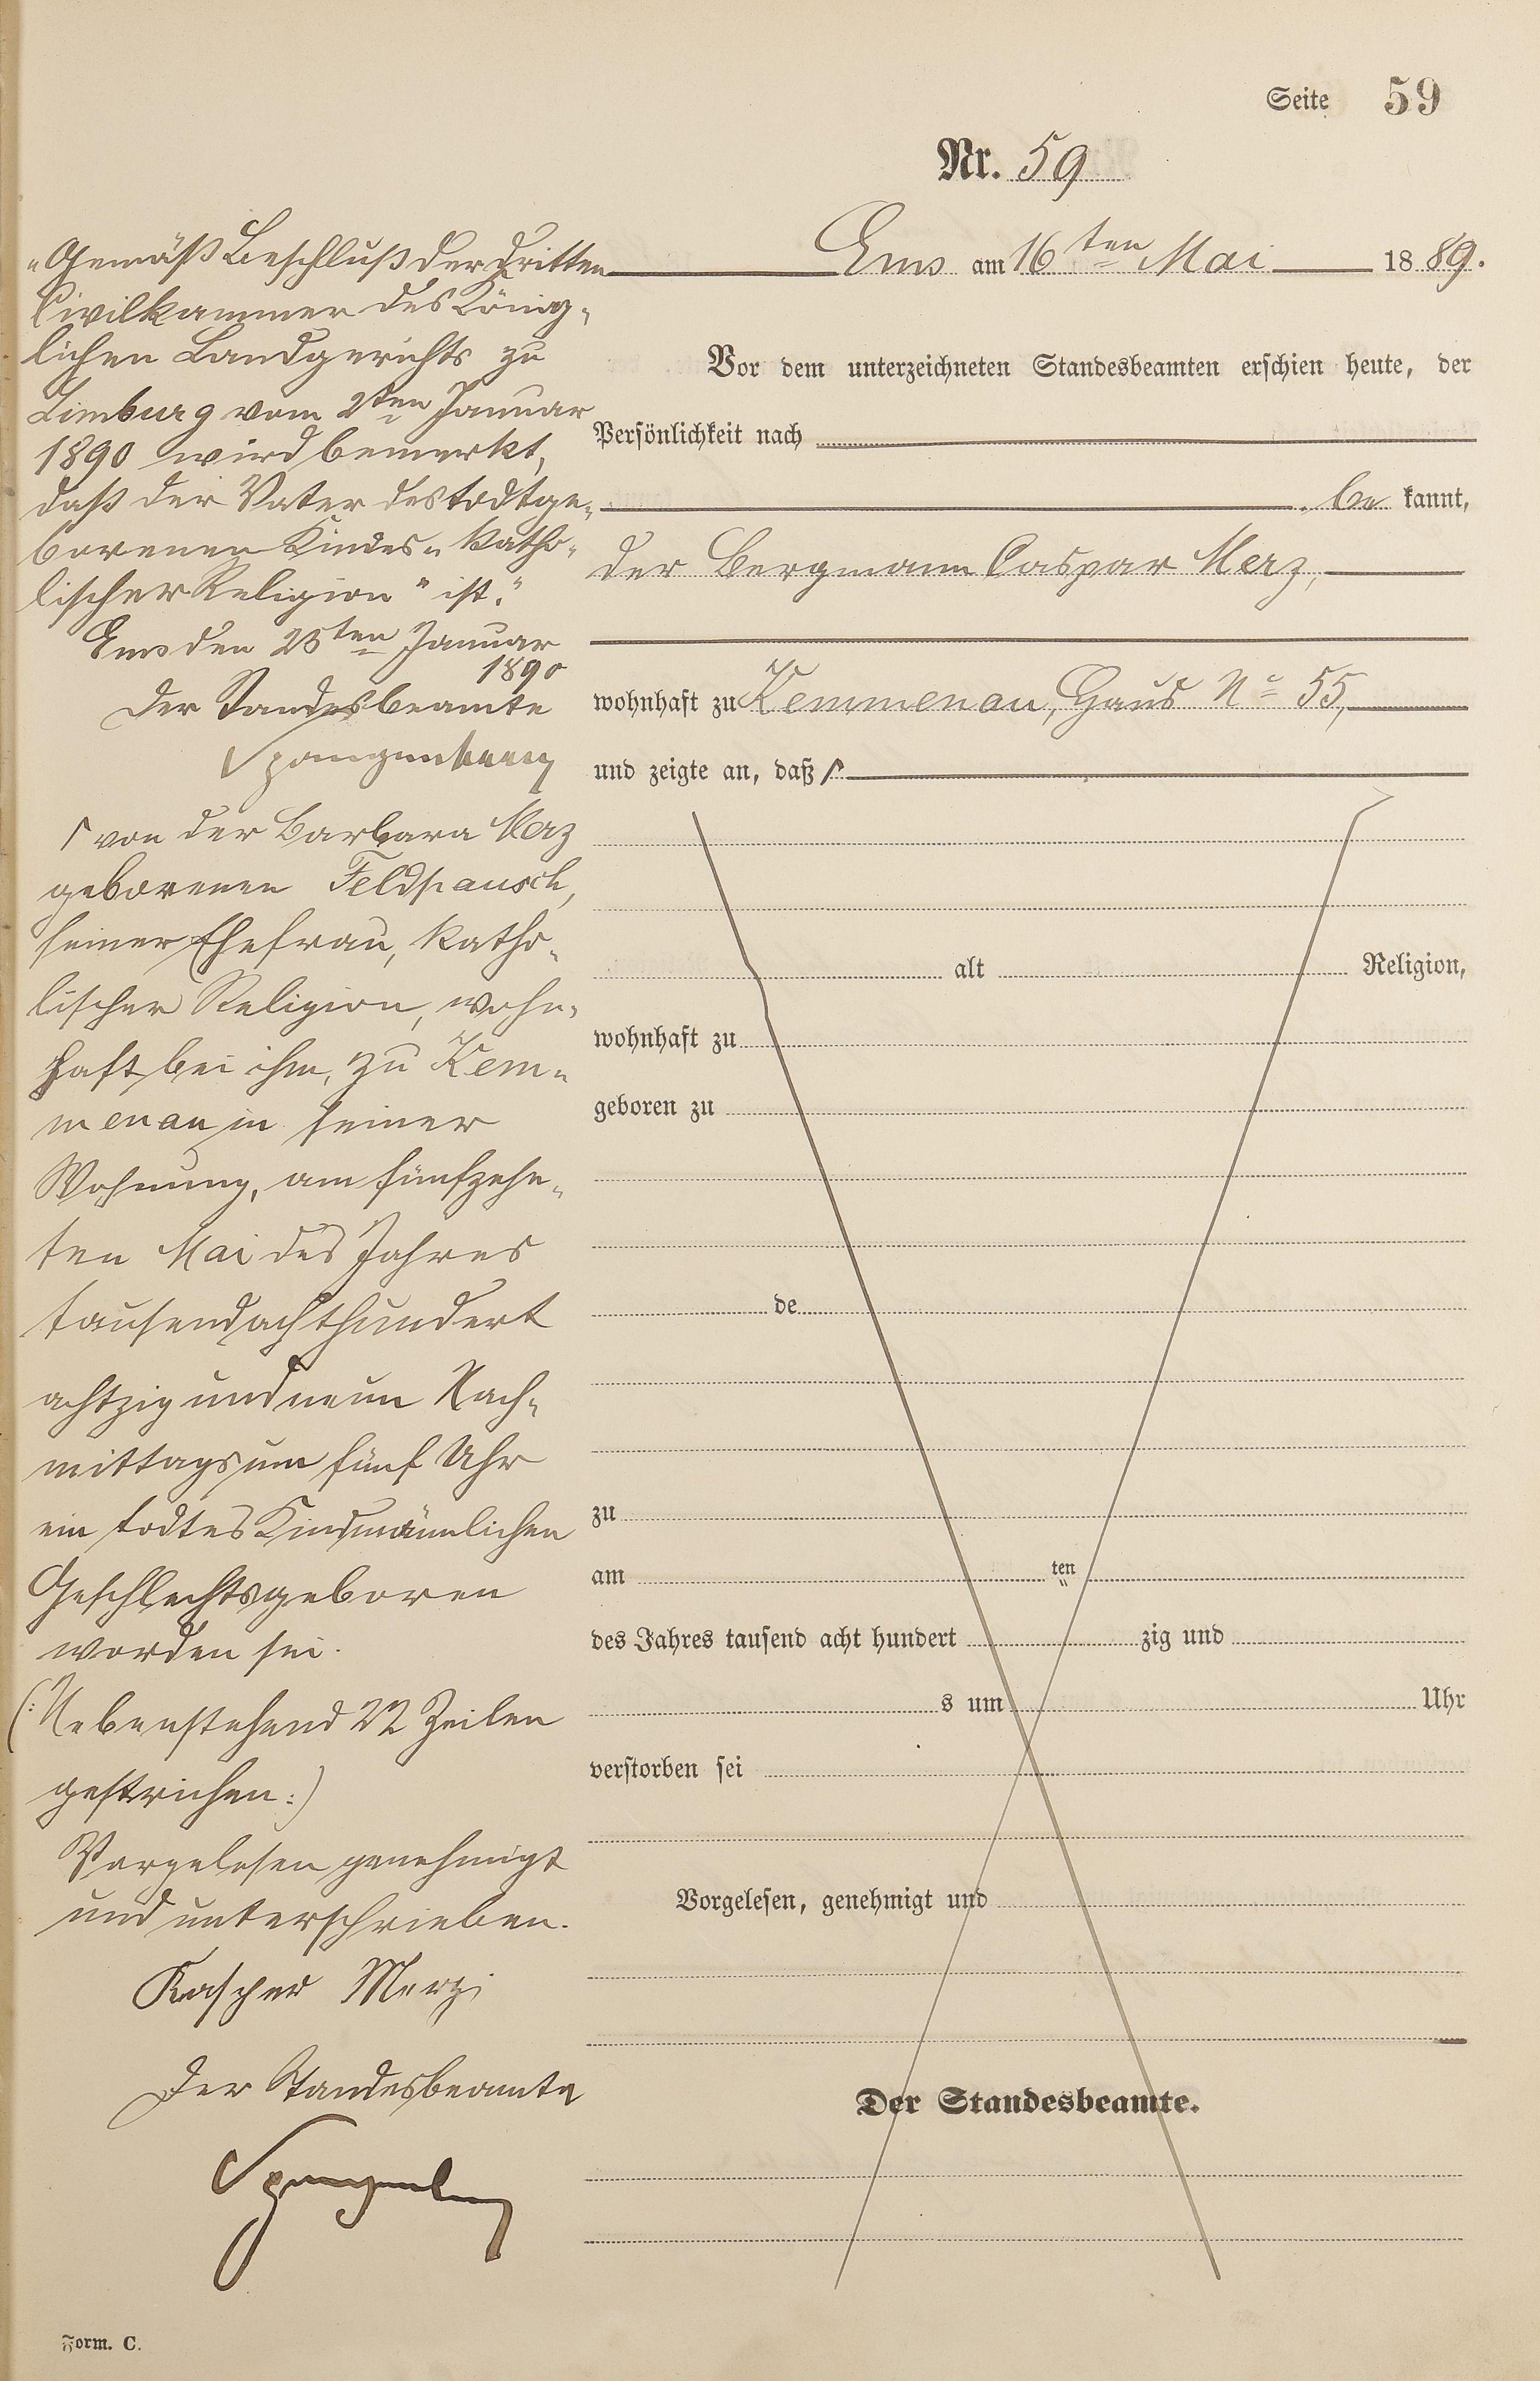 Seite 59
Nr. 59
Ems am 16ten Mai 1889.
Vor dem unterzeichneten Standesbeamten erschien heute, der
Persönlichkeit nach
be kannt,
der Bergmann Caspar Merz,
wohnhaft zu Kemmenau, Haus No 55,
und zeigte an, daß
alt Religion,
wohnhaft zu
geboren zu
de
zu
am ten
des Jahres tausend acht hundert zig und
s um Uhr
verstorben sei
Vorgelesen, genehmigt und
Der Standesbeamte.
„Gemäß Beschluß der dritten
Civilkammer des König-
lichen Landgerichts zu
Limburg vom 2ten Januar
1890 wird bemerkt,
daß der Vater des todtge-
borenen Kindes „katho-
lischer Religion“ ist.“
Ems den 25ten Januar
1890
Der Standesbeamte
Spangenberg
von der Barbara Merz
geborenen Feldpausch,
seiner Ehefrau, katho-
lischer Religion, wohn-
haft bei ihm, zu Kem-
menau in seiner
Wohnung, am fünfzehn-
ten Mai des Jahres
tausendachthundert
achtzig und neun Nach-
mittags um fünf Uhr
ein todtes Kind männlichen
Geschlechts geboren
worden sei.
(: Nebenstehend 22 Zeilen
gestrichen :)
Vorgelesen genehmigt
und unterschrieben.
Kasper Merz
Der Standesbeamte
Spangenberg
Form. C.